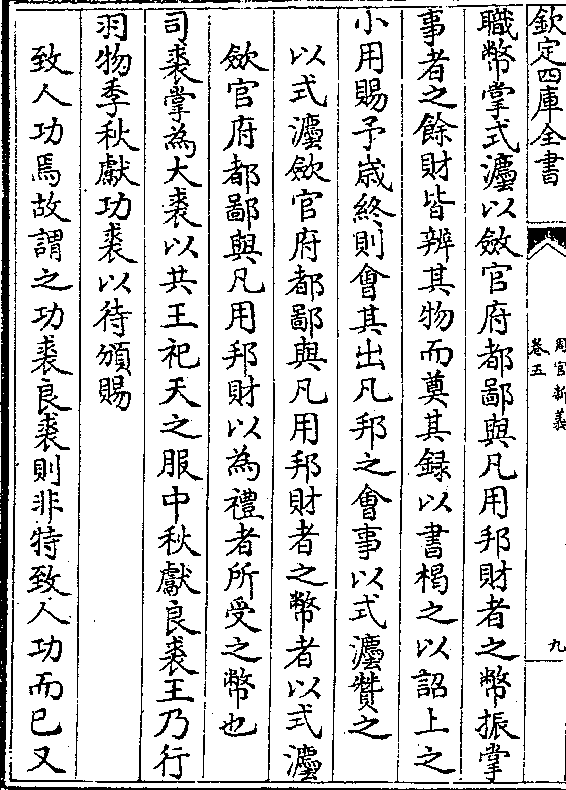 欽定四庫全書
周官新義
卷五
九
職幣掌式灋以斂官府都鄙與凡用邦財者之幣振掌
事者之餘財皆辨其物而奠其録以書楬之以詔上之
小用賜予歳終則會其出凡邦之會事以式灋贊之
以式灋斂官府都鄙與凡用邦財者之幣者以式灋
斂官府都鄙與凡用邦財以為禮者所受之幣也
司裘掌為大裘以共王祀天之服中秋獻良裘王乃行
羽物季秋獻功裘以待頒賜
致人功焉故謂之功裘良裘則非特致人功而已又